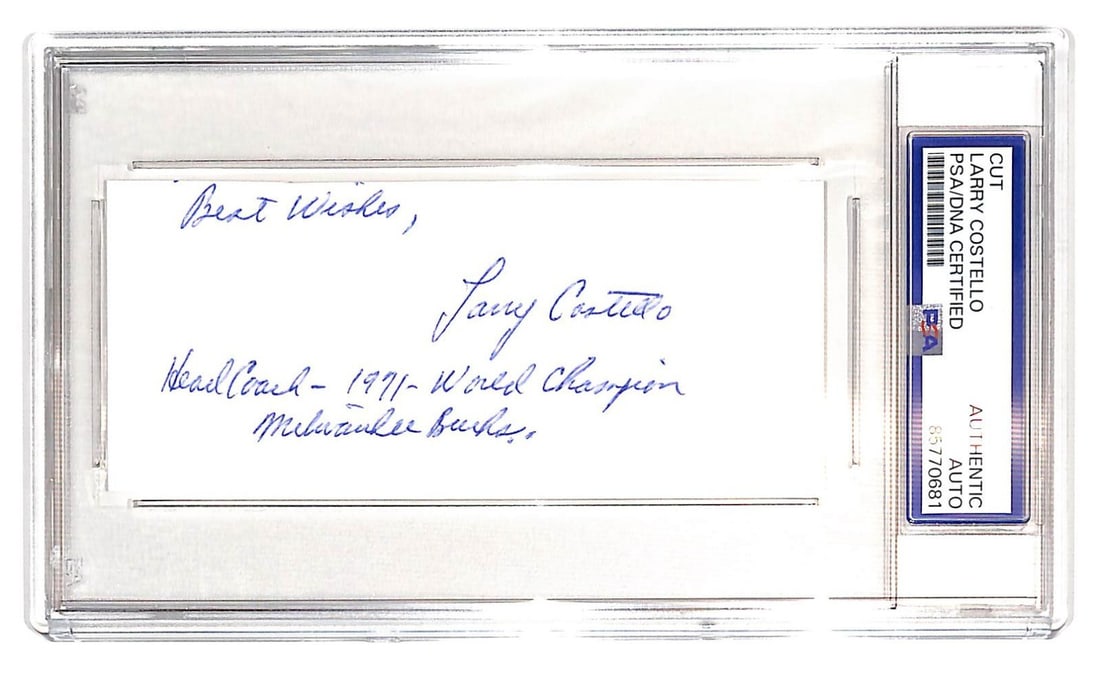 Best Wishes,
Larry Costello
Head Coach - 1971 - World Champion
Milwaukee Bucks.
CUT
LARRY COSTELLO
PSA/DNA CERTIFIED
AUTHENTIC
AUTO
85770681
PSA